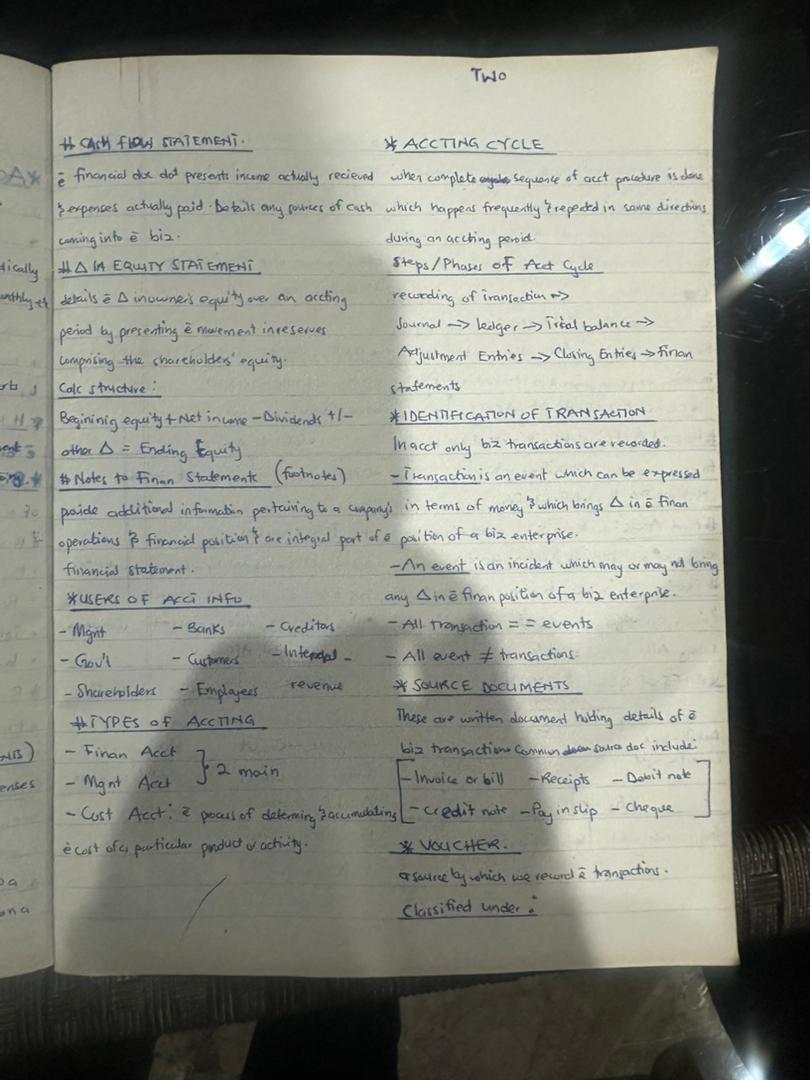 TWO
# CASH FLOW STATEMENT.
ē financial doc dat presents income actually recieved
& expenses actually paid. Details any sources of cash
coming into ē biz.
# Δ IN EQUITY STATEMENT
details ē Δ in owner's equity over an accting
period by presenting ē movement in reserves
comprising the shareholders' equity.
Calc structure:
Begininig equity + Net income - Dividends +/-
other Δ = Ending Equity
# Notes to Finan Statements (footnotes)
provide additional information pertaining to a company's
operations & financial position & are integral part of ē
financial statement.
*USERS OF ACCT INFO
- Mgnt - Banks - Creditors
- Gov't - Customers - Internal -
- Shareholders - Employees revenue
# TYPES OF ACCTING
- Finan Acct
- Mgnt Acct } 2 main
- Cost Acct: ē process of determing & accumulating
ē cost of a particular product or activity.
* ACCTING CYCLE
when complete sequence of acct procedure is done
which happens frequently & repeted in same directions
during an accting peroid.
Steps/Phases of Acct Cycle
recording of Transaction =>
Journal -> ledger -> Trial balance ->
Adjustment Entries -> Closing Entries -> Finan
statements
*IDENTIFICATION OF TRANSACTION
In acct only biz transactions are recorded.
- Transaction is an event which can be expressed
in terms of money & which brings Δ in ē finan
position of a biz enterprise.
- An event is an incident which may or may not bring
any Δ in ē finan position of a biz enterprise.
- All transaction = = events
- All event ≠ transactions
* SOURCE DOCUMENTS
These are written document holding details of ē
biz transactions common source doc include:
- Invoice or bill - Receipts - Debit note
- Credit note - Pay in slip - Cheque
* VOUCHER.
a source by which we record ē transactions.
Classified under: